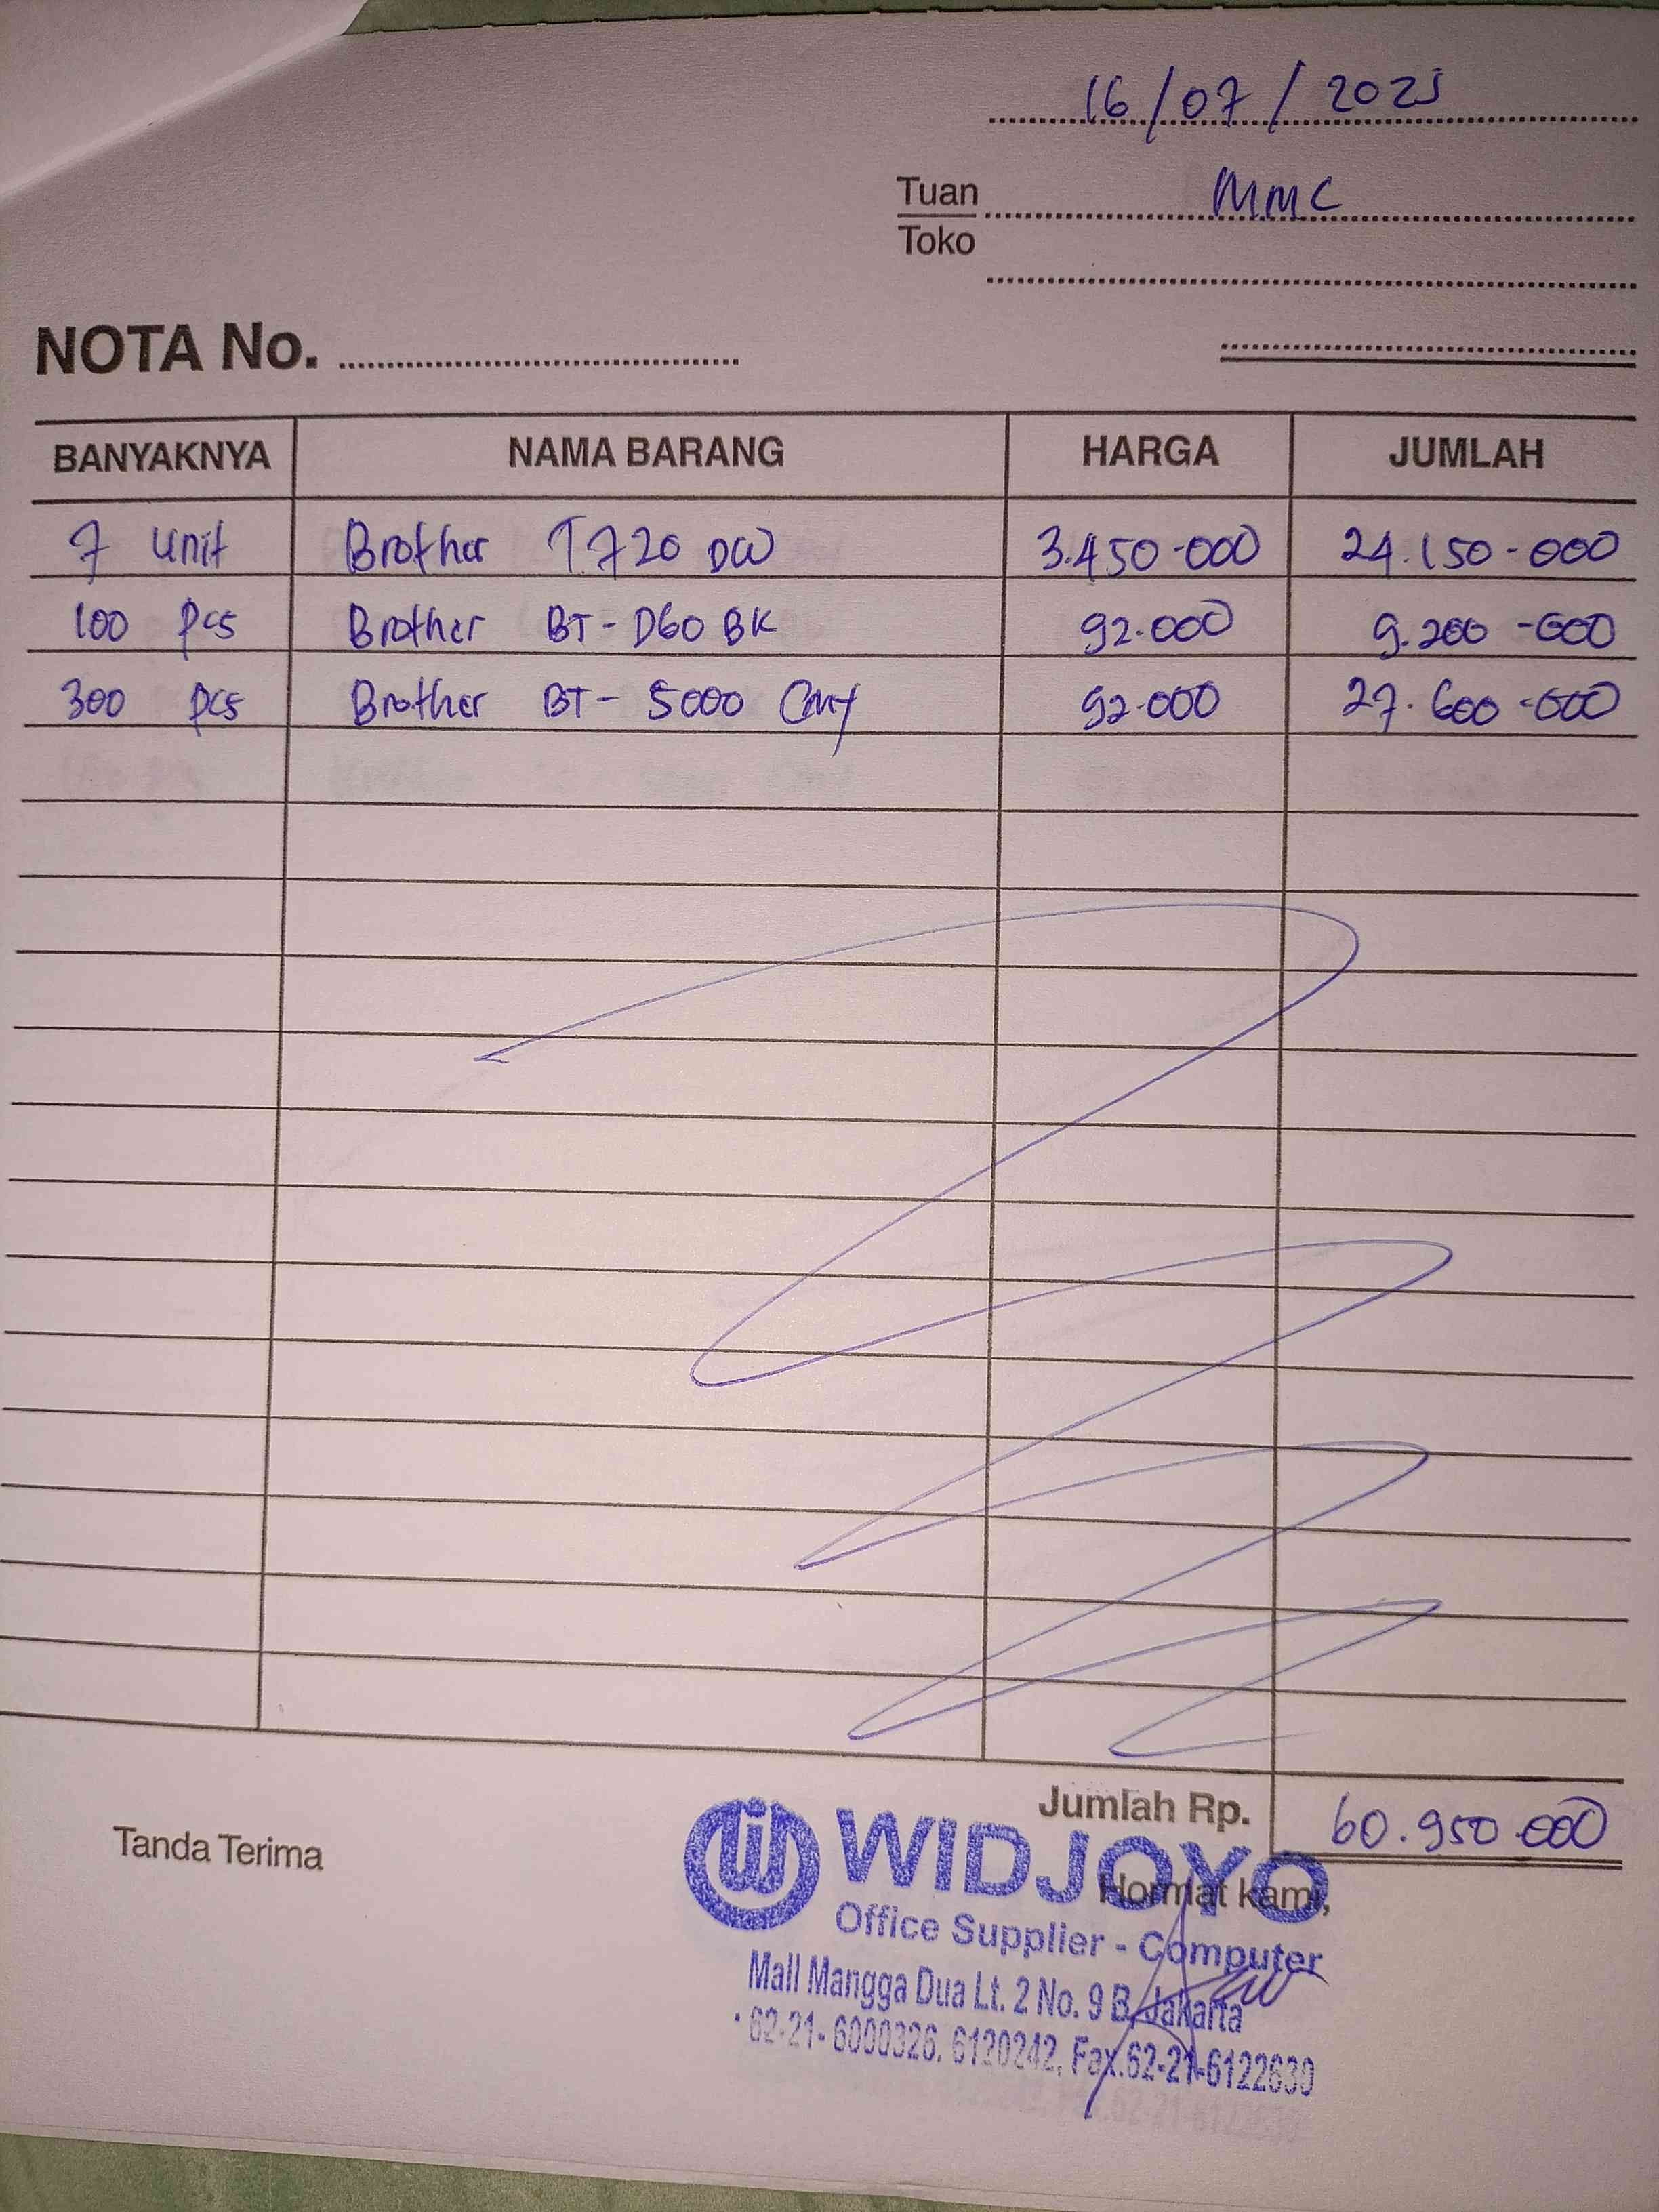 16/07/2025
Tuan MMC
Toko
NOTA No.
BANYAKNYA NAMA BARANG HARGA JUMLAH
7 Unit Brother T720 DW 3.450.000 24.150.000
100 pcs Brother BT-D60 BK 92.000 9.200.000
300 pcs Brother BT-5000 CMY 92.000 27.600.000
Jumlah Rp. 60.950.000
Tanda Terima
Hormat kami,
WIDJOYO
Office Supplier - Computer
Mall Mangga Dua Lt. 2 No. 9 B, Jakarta
62-21-6000326, 6120242, Fax.62-21-6122630